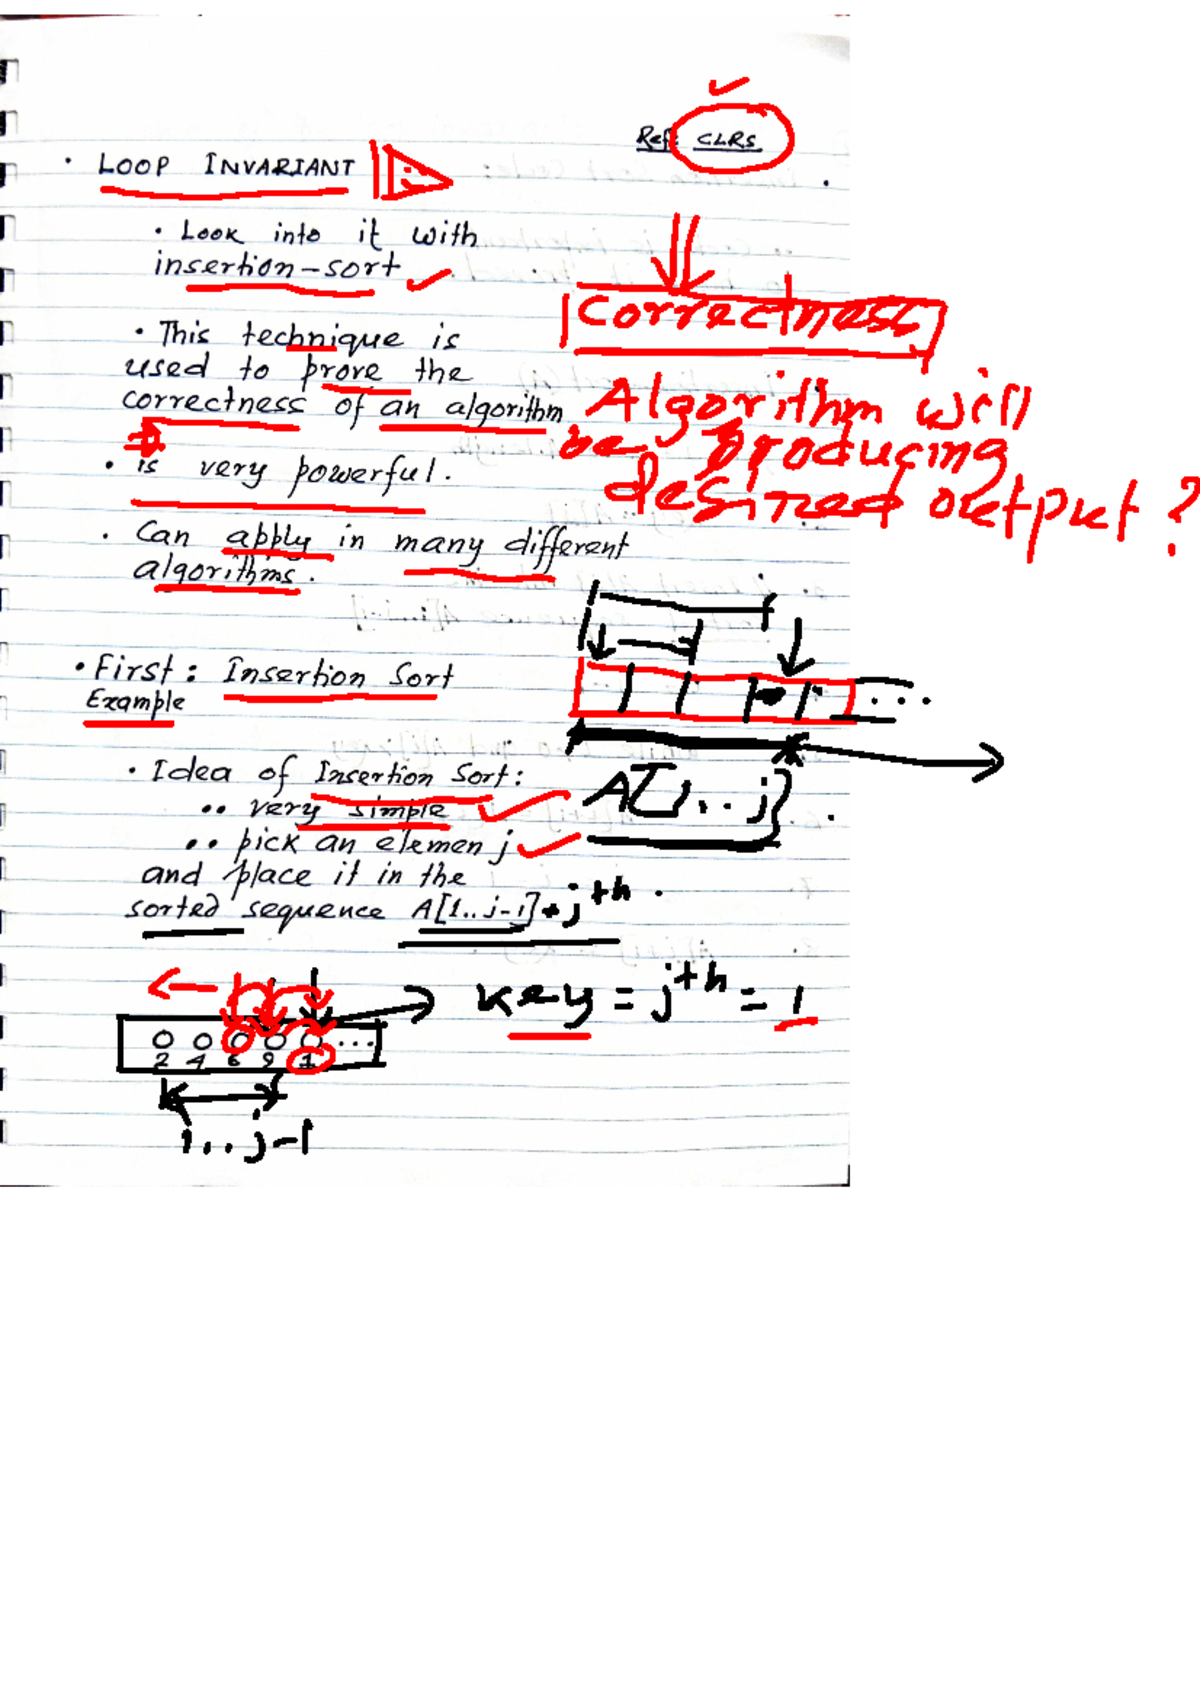 Ref: CLRS
• LOOP INVARIANT
• Look into it with
insertion-sort
Correctness
• This technique is
used to prove the
correctness of an algorithm
Algorithm will
be producing
desired output ?
• is very powerful.
• Can apply in many different
algorithms.
• First: Insertion Sort
Example
• Idea of Insertion Sort:
•• very simple
A[1..j]
•• pick an elemen j
and place it in the
sorted sequence A[1..j-1] jth
key = jth = 1
2 4 6 9 1 ...
1..j-1